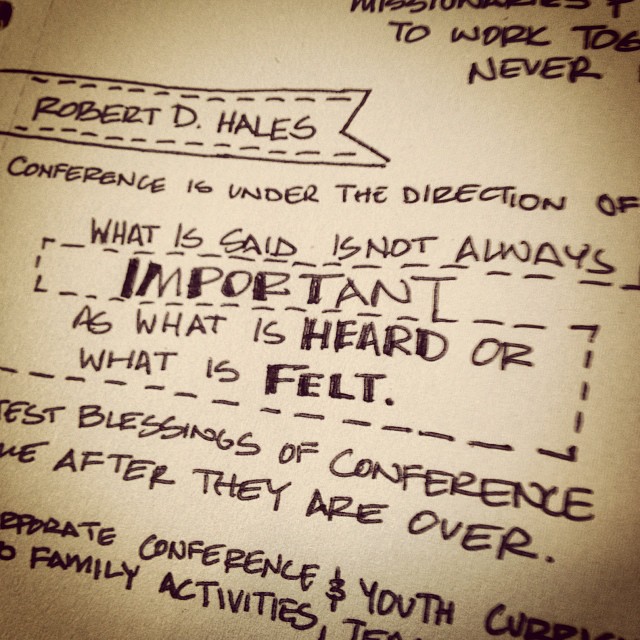 TO WORK
NEVER
ROBERT D. HALES
CONFERENCE IS UNDER THE DIRECTION OF
WHAT IS SAID IS NOT ALWAYS
IMPORTANT
AS WHAT IS HEARD OR
WHAT IS FELT.
BLESSINGS OF CONFERENCE
AFTER THEY ARE OVER.
CONFERENCE & YOUTH
FAMILY ACTIVITIES,